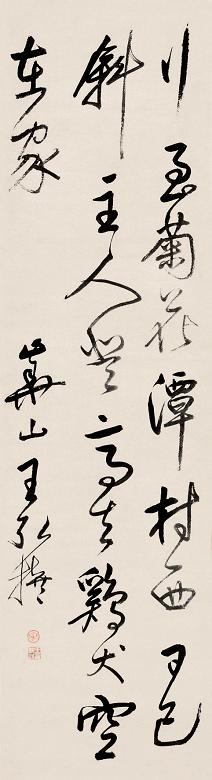 行至菊花潭村西日已
斜主人登高去鷄犬空
在家
崋山王弘撰